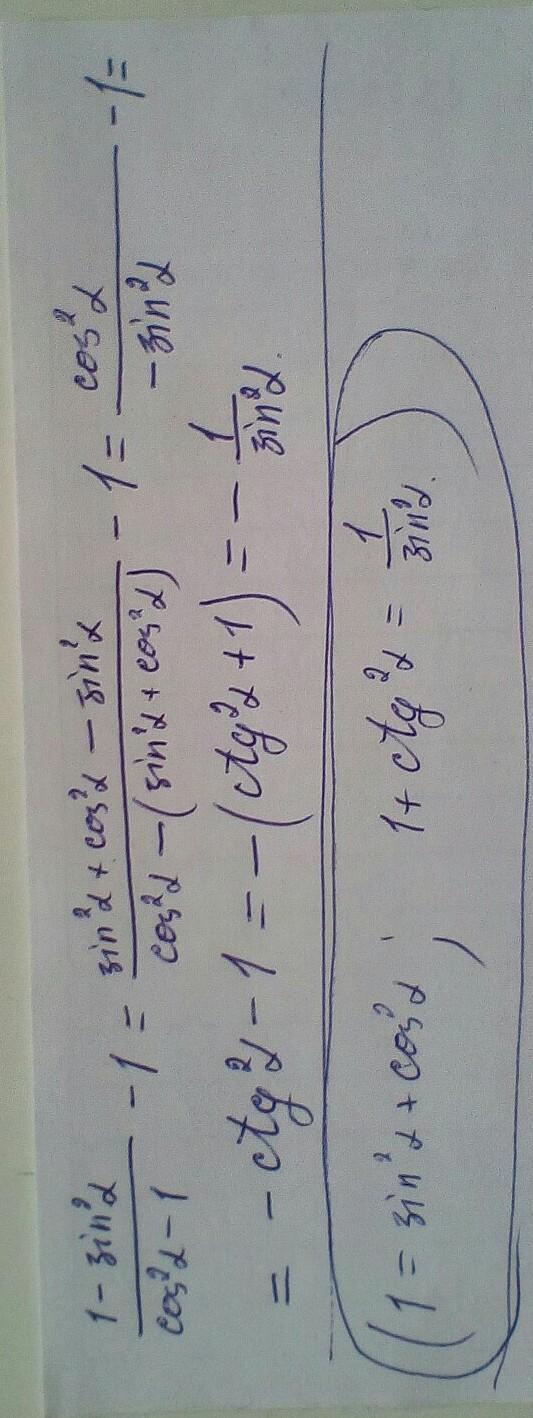 (1 - sin²α)/(cos²α - 1) - 1 = (sin²α + cos²α - sin²α)/(cos²α - (sin²α + cos²α)) - 1 = cos²α/(-sin²α) - 1 =
= - ctg²α - 1 = - (ctg²α + 1) = - 1/sin²α.
(1 = sin²α + cos²α; 1 + ctg²α = 1/sin²α.)